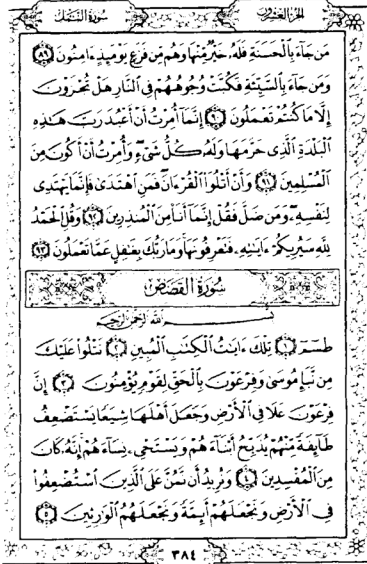 سُورَةُ النَّمْلِ
الجُزْءُ العِشْرُونَ
مَن جَآءَ بِٱلْحَسَنَةِ فَلَهُۥ خَيْرٌ مِّنْهَا وَهُم مِّن فَزَعٍ يَوْمَئِذٍ ءَامِنُونَ ٨٩
وَمَن جَآءَ بِٱلسَّيِّئَةِ فَكُبَّتْ وُجُوهُهُمْ فِى ٱلنَّارِ هَلْ تُجْزَوْنَ
إِلَّا مَا كُنتُمْ تَعْمَلُونَ ٩٠ إِنَّمَآ أُمِرْتُ أَنْ أَعْبُدَ رَبَّ هَـٰذِهِ
ٱلْبَلْدَةِ ٱلَّذِى حَرَّمَهَا وَلَهُۥ كُلُّ شَىْءٍ وَأُمِرْتُ أَنْ أَكُونَ مِنَ
ٱلْمُسْلِمِينَ ٩١ وَأَنْ أَتْلُوَا۟ ٱلْقُرْءَانَ فَمَنِ ٱهْتَدَىٰ فَإِنَّمَا يَهْتَدِى
لِنَفْسِهِۦ وَمَن ضَلَّ فَقُلْ إِنَّمَآ أَنَا۠ مِنَ ٱلْمُنذِرِينَ ٩٢ وَقُلِ ٱلْحَمْدُ
لِلَّهِ سَيُرِيكُمْ ءَايَـٰتِهِۦ فَتَعْرِفُونَهَا وَمَا رَبُّكَ بِغَـٰفِلٍ عَمَّا تَعْمَلُونَ ٩٣
سُورَةُ القَصَصِ
بِسْمِ ٱللَّهِ ٱلرَّحْمَـٰنِ ٱلرَّحِيمِ
طسٓمٓ ١ تِلْكَ ءَايَـٰتُ ٱلْكِتَـٰبِ ٱلْمُبِينِ ٢ نَتْلُوا۟ عَلَيْكَ
مِن نَّبَإِ مُوسَىٰ وَفِرْعَوْنَ بِٱلْحَقِّ لِقَوْمٍ يُؤْمِنُونَ ٣ إِنَّ
فِرْعَوْنَ عَلَا فِى ٱلْأَرْضِ وَجَعَلَ أَهْلَهَا شِيَعًا يَسْتَضْعِفُ
طَآئِفَةً مِّنْهُمْ يُذَبِّحُ أَبْنَآءَهُمْ وَيَسْتَحْىِۦ نِسَآءَهُمْ إِنَّهُۥ كَانَ
مِنَ ٱلْمُفْسِدِينَ ٤ وَنُرِيدُ أَن نَّمُنَّ عَلَى ٱلَّذِينَ ٱسْتُضْعِفُوا۟
فِى ٱلْأَرْضِ وَنَجْعَلَهُمْ أَئِمَّةً وَنَجْعَلَهُمُ ٱلْوَٰرِثِينَ ٥
٣٨٤